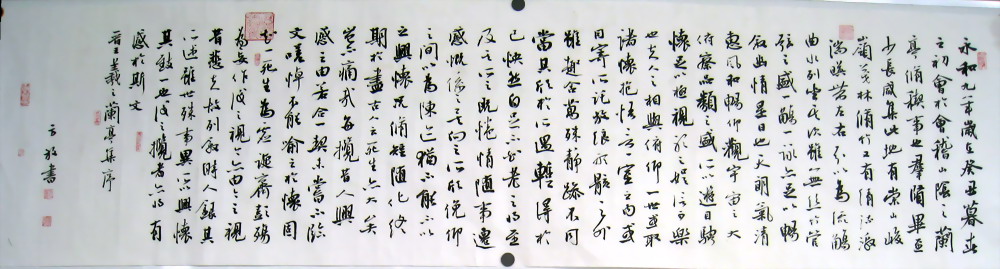 永和九年歲在癸丑暮春
之初會於會稽山陰之蘭
亭脩禊事也群賢畢至
少長咸集此地有崇山峻
嶺茂林脩竹又有清流激
湍暎帶左右引以為流觴
曲水列坐其次雖無絲竹管
弦之盛一觴一詠亦足以暢
敘幽情是日也天朗氣清
惠風和暢仰觀宇宙之大
俯察品類之盛所以遊目騁
懷足以極視聽之娛信可樂
也夫人之相與俯仰一世或取
諸懷抱悟言一室之內或
因寄所託放浪形骸之外
雖趣舍萬殊靜躁不同
當其欣於所遇暫得於
己快然自足不知老之將至
及其所之既惓情隨事遷
感慨係之矣向之所欣俛仰
之間以為陳迹猶不能不以
之興懷況脩短隨化終
期於盡古人云死生亦大矣
豈不痛哉每攬昔人興
感之由若合一契未嘗不臨
文嗟悼不能喻之於懷固
知一死生為虛誕齊彭殤
為妄作後之視今亦由今之視
昔悲夫故列敘時人錄其
所述雖世殊事異所以興懷
其致一也後之攬者亦將有
感於斯文
晉王羲之蘭亭集序
書